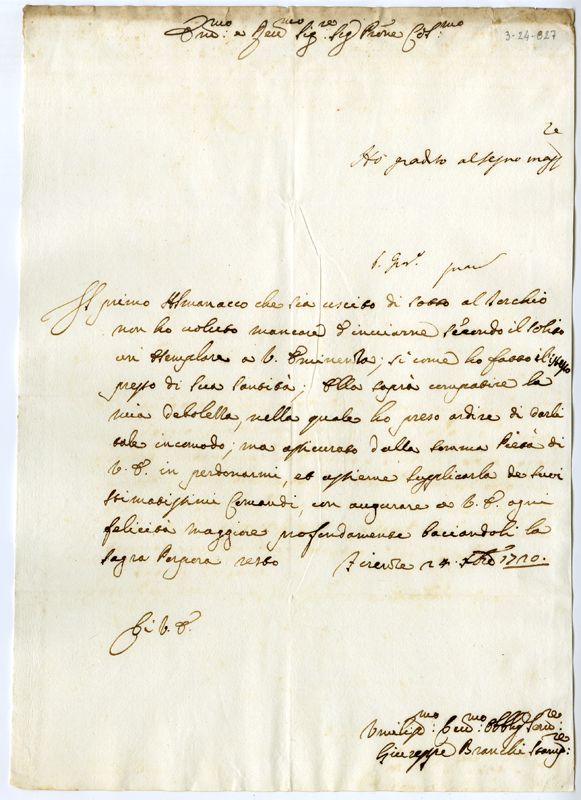 Em̃o: e Reũmo Sig.re Sig Pr̃one Col:mo
3-24-827
Hò gradito al segno magg.re
Il primo Almanacco che sia uscito di sotto al Torchio
non ho voluto mancare d'inviarne secondo il solito
un Esemplare a V. Eminenza; si come ho fatto l'istesso
presso di Sua Santità; Ella saprà compatire la
mia debolezza, nella quale ho preso ardire di darli
tale incomodo; ma assicurato dalla somma Pietà di
V. E. in perdonarmi, et assieme supplicarla de suoi
stimatissimi Comandi, con augurare a V. E. ogni
felicità maggiore profondamente baciandoli la
sagra Porpora resto Firenze 24. 1720.
Di V. E.
Umiliss.mo Deu.mo Obblig Seru.re
Giuseppe Branchi Stamp.re: